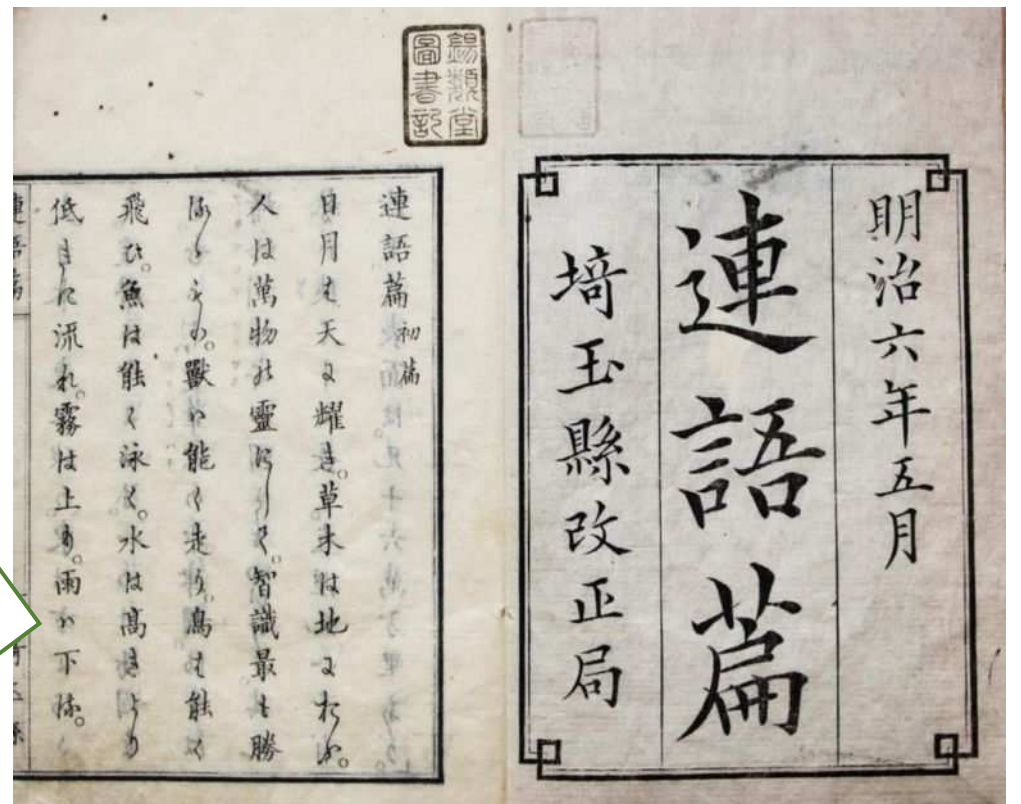 明治六年五月
連語篇
埼玉縣改正局
錫類堂
圖書記
連語篇 初篇
日月は天に耀き。草木は地に
人は萬物の靈にして。智識最も勝
獸ハ能く走り。鳥は能く
飛ひ。魚は能く泳く。水は高きより
低きに流れ。霧は上り。雨ハ下る。
連語篇